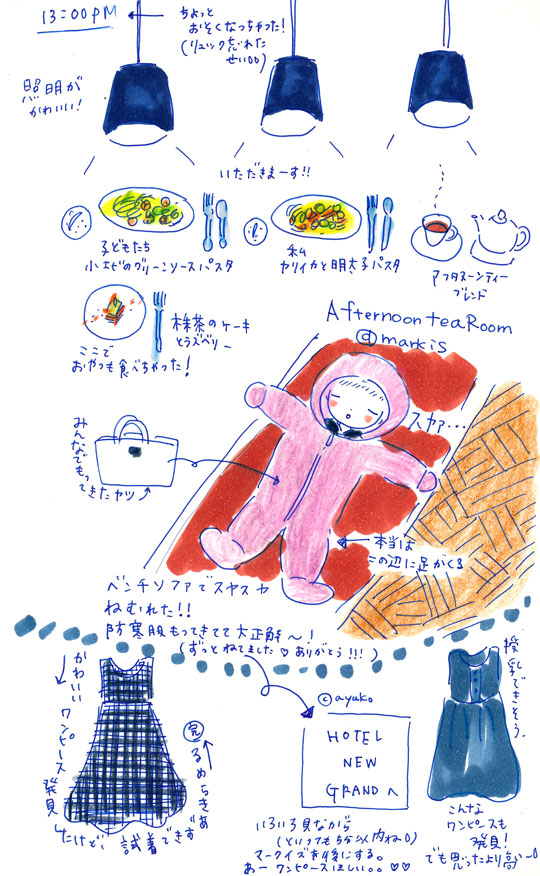 13:00PM
ちょっと
おそくなっちゃった!
(リュック忘れた
せい00)
照明が
かわいい!
いただきまーす!!
子どもたち
小エビのグリーンソースパスタ
私
ヤリイカと明太子パスタ
アフタヌーンティー
ブレンド
抹茶のケーキ
とラズベリー
ここで
おやつも食べちゃった!
Afternoon tea Room
@markis
スヤァ…
みんなでもって
きたヤツ
本当は
この辺に足がくる
ベンチソファでスヤスヤ
ねむれた!!
防寒服もってきてて大正解〜!
(ずっとねてました♡ありがとう!!!)
かわいい
ワンピース
発見
したけど、
試着できず
あきらめる
完
©ayuko
HOTEL
NEW
GRANDへ
いろいろ見ながら
(といっても5分以内ね)
マークイズを後にする。
あーワンピースほしい。。♡♡
授乳できそう。
こんな
ワンピースも
発見!
でも思ったより高ー